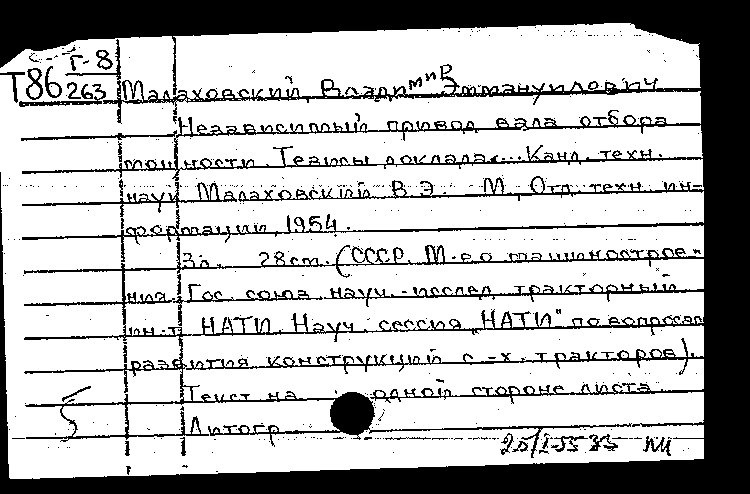 Т86 Г-8
263
Малаховский, Владимир Эммануилович
Независимый привод вала отбора
мощности. Тезисы доклада... Канд. техн.
наук Малаховский В.Э. М., Отд. техн. ин-
формации, 1954.
3л. 28см. (СССР. М-во машинострое-
ния. Гос. союз. науч.-исслед. тракторный
ин-т НАТИ. Науч. сессия "НАТИ" по вопросам
развития конструкций с.-х. тракторов).
Текст на одной стороне листа
Литогр.